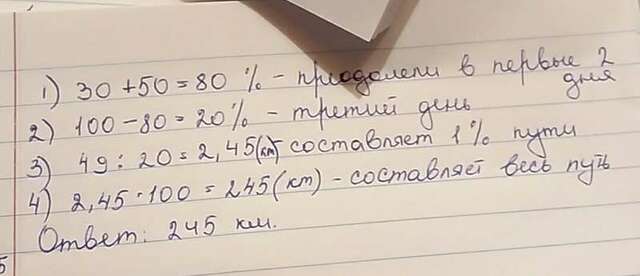 1) 30 + 50 = 80 % - преодолели в первые 2 дня
2) 100 - 80 = 20 % - третий день
3) 49 : 20 = 2,45 (км) составляет 1 % пути
4) 2,45 · 100 = 245 (км) - составляет весь путь
Ответ: 245 км.
5